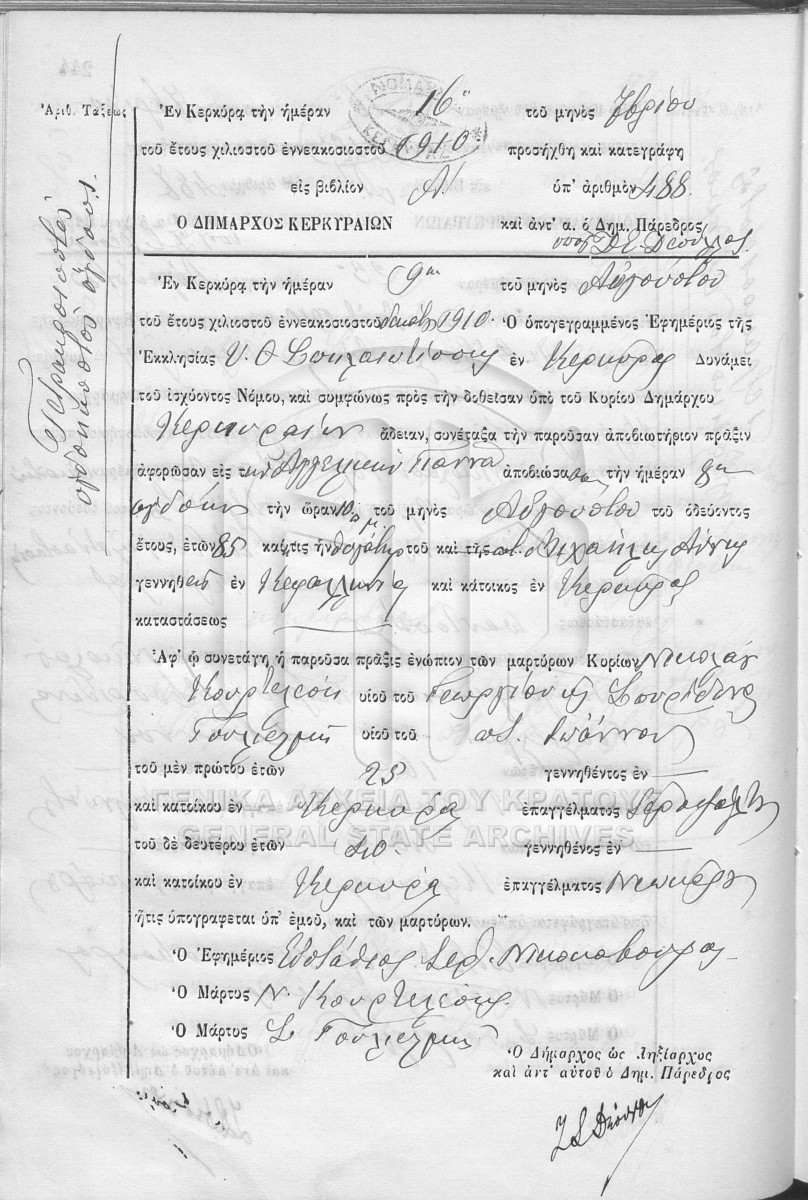 Ἀριθ. Τάξεως
Τετρακοσιοστὸν
ὀγδοηκοστὸν ὄγδοον.
ΝΟΜΑΡΧ
ΚΕΡΚΥΡΑΣ
Ἐν Κερκύρᾳ τὴν ἡμέραν 16 τοῦ μηνὸς 7βρίου
τοῦ ἔτους χιλιοστοῦ ἐννεακοσιοστοῦ 1910 προσήχθη καὶ κατεγράφη
εἰς βιβλίον Α! ὑπ' ἀριθμὸν 488
Ο ΔΗΜΑΡΧΟΣ ΚΕΡΚΥΡΑΙΩΝ καὶ ἀντ' α. ὁ Δημ. Πάρεδρος
Ἐν Κερκύρᾳ τὴν ἡμέραν 9ην τοῦ μηνὸς Αὐγούστου
τοῦ ἔτους χιλιοστοῦ ἐννεακοσιοστοῦ δεκάτου 1910. Ὁ ὑπογεγραμμένος Ἐφημέριος τῆς
Ἐκκλησίας Υ. Θ. Σπηλαιωτίσσης ἐν Κερκύρᾳ Δυνάμει
τοῦ ἰσχύοντος Νόμου, καὶ συμφώνως πρὸς τὴν δοθεῖσαν ὑπὸ τοῦ Κυρίου Δημάρχου
Κερκυραίων ἄδειαν, συνέταξα τὴν παροῦσαν ἀποβιωτήριον πρᾶξιν
ἀφορῶσαν εἰς τὴν Ἀγγελικὴν ἀποβιώσασαν τὴν ἡμέραν 8ην
ὀγδόην τὴν ὥραν 10 π.μ. τοῦ μηνὸς Αὐγούστου τοῦ ὁδεύοντος
ἔτους, ἐτῶν 85 καὶ ἥτις ἦν θυγάτηρ τοῦ καὶ τῆς Μιχαήλ
γεννηθεῖσα ἐν Κεφαλληνίᾳ καὶ κάτοικος ἐν Κερκύρᾳ
καταστάσεως
Ἀφ' ᾧ συνετάγη ἡ παροῦσα πρᾶξις ἐνώπιον τῶν μαρτύρων Κυρίων Νικολάου
Κουρτελέση υἱοῦ τοῦ Γεωργίου Σπυρίδωνα
Γουλιέλμη υἱοῦ τοῦ π. Ἰωάννου
τοῦ μὲν πρώτου ἐτῶν 25 γεννηθέντος ἐν
καὶ κατοίκου ἐν Κερκύρᾳ ἐπαγγέλματος Ἱεροψάλτου
τοῦ δὲ δευτέρου ἐτῶν 40 γεννηθένος ἐν
καὶ κατοίκου ἐν Κερκύρᾳ ἐπαγγέλματος Νεωκόρου
ἥτις ὑπογράφεται ὑπ' ἐμοῦ, καὶ τῶν μαρτύρων.
Ὁ Ἐφημέριος Εὐστάθιος Ἱερ.
Ὁ Μάρτυς Ν. Κουρτελέσης
Ὁ Μάρτυς Σ Γουλιέλμης
Ὁ Δήμαρχος ὡς Ληξίαρχος
καὶ ἀντ' αὐτοῦ ὁ Δημ. Πάρεδρος
ΓΕΝΙΚΑ ΑΡΧΕΙΑ ΤΟΥ ΚΡΑΤΟΥΣ
GENERAL STATE ARCHIVES